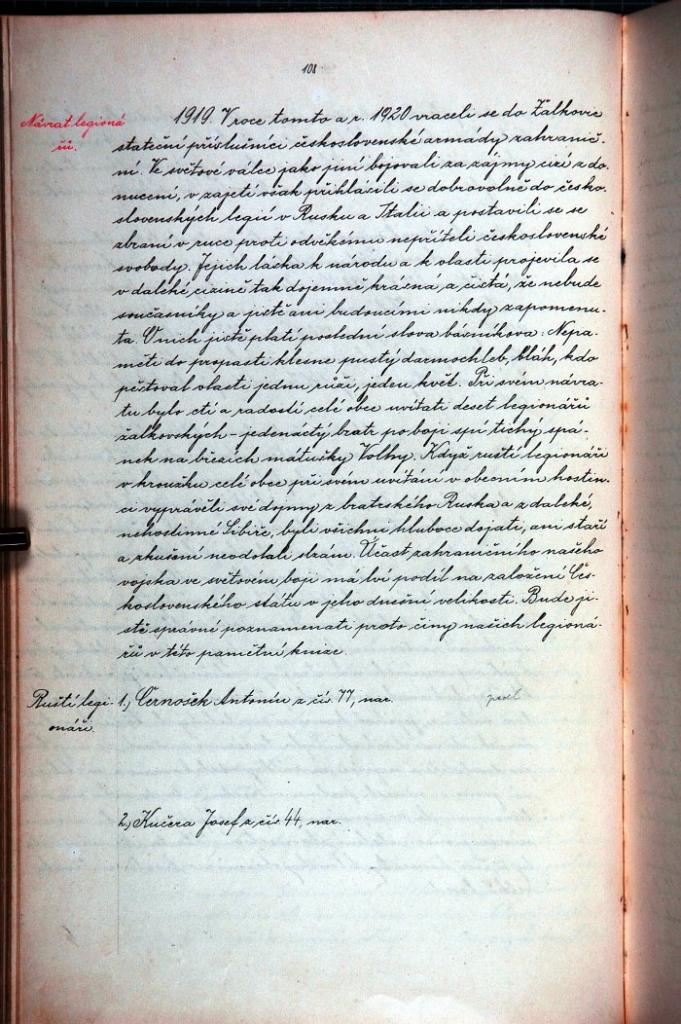 108
Návrat legioná
řů.
1919. V roce tomto a r. 1920 vraceli se do Žalkovic
stateční příslušníci československé armády zahranič-
ní. Ve světové válce jako jiní bojovali za zájmy cizí z do-
nucení, v zajetí však přihlásili se dobrovolně do česko-
slovenských legií v Rusku a Italii a postavili se se
zbraní v ruce proti odvěkému nepříteli československé
svobody. Jejich láska k národu a k vlasti projevila se
v daleké cizině tak dojemně krásná a čistá, že nebude
současníky a jistě ani budoucími nikdy zapomenu-
ta. O nich jistě platí poslední slova básníkova: Nepa-
měti do propasti klesne pustý darmochleb, bláh, kdo
pěstoval vlasti jednu růži, jeden květ. Při svém návra-
tu bylo ctí a radostí celé obce uvítati deset legionářů
žalkovských - jedenáctý bratr po boji spí tichý spá-
nek na březích mátušky Volhy. Když ruští legionáři
v kroužku celé obce při svém uvítání v obecním hostin-
ci vyprávěli své dojmy z bratrského Ruska a z daleké,
nehostinné Sibiře, byli všichni hluboce dojati, ani staří
a zkušení neodolali slzám. Účast zahraničního našeho
vojska ve světovém boji má lví podíl na založení Čes-
koslovenského státu v jeho dnešní velikosti. Bude ji-
stě správné poznamenati proto činy našich legioná-
řů v této pamětní knize.
Ruští legi-
onáři.
1.) Černošek Antonín z čís. 77, nar.
2.) Kučera Josef z čís. 44, nar.